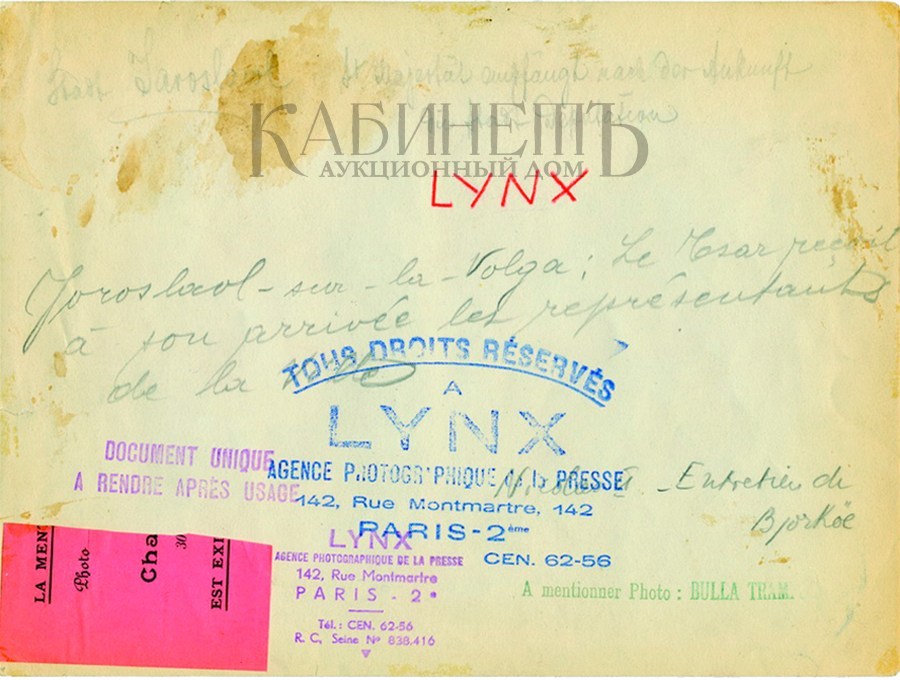 Stadt Jaroslavl. Sr Majestät empfängt nach der Ankunft
die Stadt Deputation
КАБИНЕТЪ
АУКЦИОННЫЙ ДОМ
LYNX
Joroslaol-sur-la-Volga; Le Tsar reçoit
à son arrivée les représentants
de la ville
TOUS DROITS RÉSERVÉS
A
LYNX
DOCUMENT UNIQUE
A RENDRE APRÈS USAGE
AGENCE PHOTOGRAPHIQUE de la PRESSE
142, Rue Montmartre, 142
PARIS-2ème
CEN. 62-56
Nicolas II. Entretien di
Bjorköe
LYNX
AGENCE PHOTOGRAPHIQUE DE LA PRESSE
142, Rue Montmartre
PARIS-2e
Tél.: CEN. 62-56
R. C. Seine No 838.416
A mentionner Photo : BULLA TRAM.
LA MEN
Photo
Cha
30
EST EXI